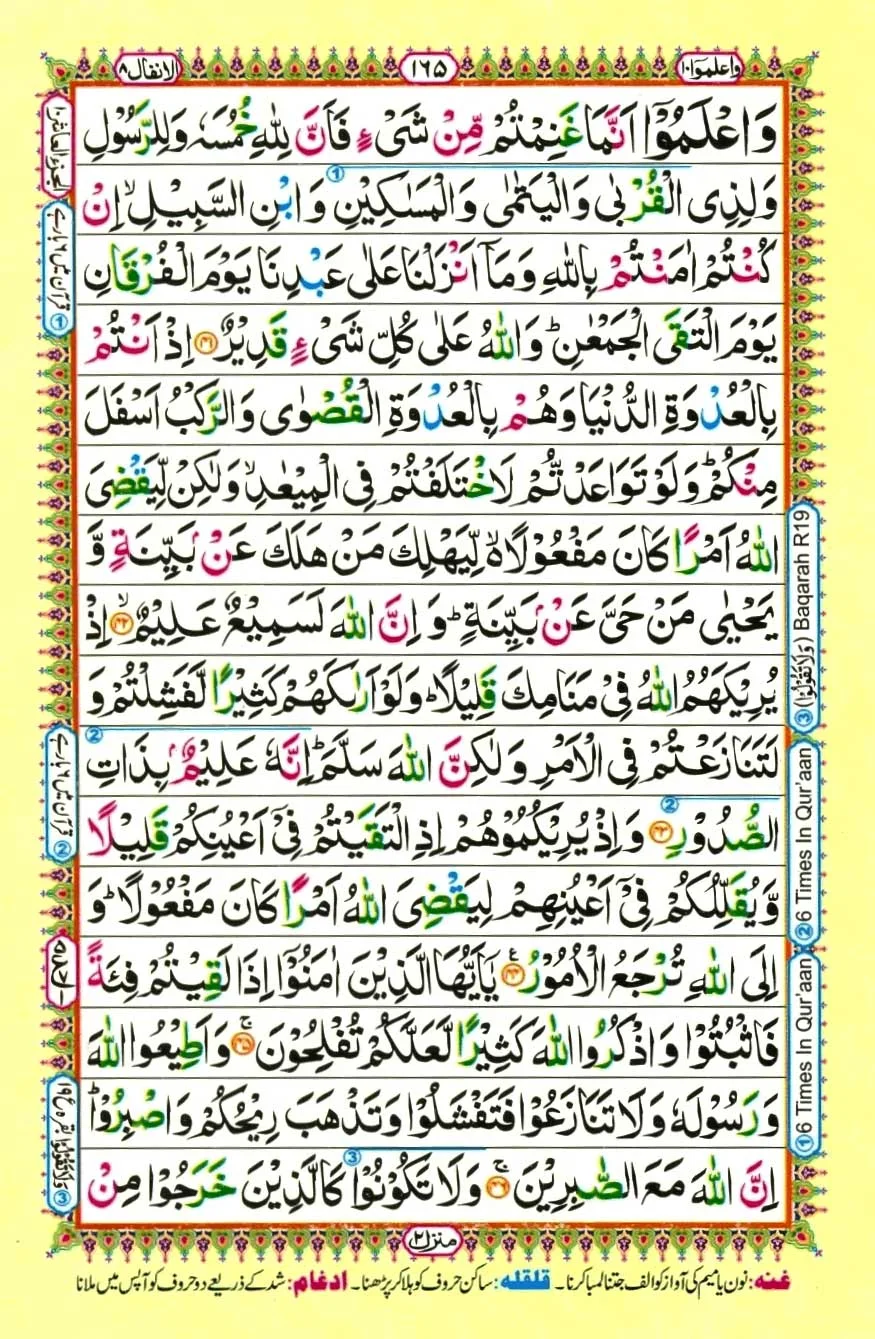 واعلموا ۱۰
۱۶۵
الانفال ۸
وَاعْلَمُوْۤا اَنَّمَا غَنِمْتُمْ مِّنْ شَیْءٍ فَاَنَّ لِلّٰهِ خُمُسَهٗ وَلِلرَّسُوْلِ
وَلِذِی الْقُرْبٰی وَالْیَتٰمٰی وَالْمَسٰكِیْنِ وَابْنِ السَّبِیْلِ ۙ اِنْ
كُنْتُمْ اٰمَنْتُمْ بِاللّٰهِ وَمَاۤ اَنْزَلْنَا عَلٰی عَبْدِنَا یَوْمَ الْفُرْقَانِ
یَوْمَ الْتَقَی الْجَمْعٰنِ ؕ وَاللّٰهُ عَلٰی كُلِّ شَیْءٍ قَدِیْرٌ ﴿۴۱﴾ اِذْ اَنْتُمْ
بِالْعُدْوَةِ الدُّنْیَا وَهُمْ بِالْعُدْوَةِ الْقُصْوٰی وَالرَّكْبُ اَسْفَلَ
مِنْكُمْ ؕ وَلَوْ تَوَاعَدْتُّمْ لَاخْتَلَفْتُمْ فِی الْمِیْعٰدِ ۙ وَلٰكِنْ لِّیَقْضِیَ
اللّٰهُ اَمْرًا كَانَ مَفْعُوْلًا ۙ۬ لِّیَهْلِكَ مَنْ هَلَكَ عَنْۢ بَیِّنَةٍ وَّ
یَحْیٰی مَنْ حَیَّ عَنْۢ بَیِّنَةٍ ؕ وَاِنَّ اللّٰهَ لَسَمِیْعٌ عَلِیْمٌ ﴿ۙ۴۲﴾ اِذْ
یُرِیْكَهُمُ اللّٰهُ فِیْ مَنَامِكَ قَلِیْلًا ؕ وَلَوْ اَرٰىكَهُمْ كَثِیْرًا لَّفَشِلْتُمْ وَ
لَتَنَازَعْتُمْ فِی الْاَمْرِ وَلٰكِنَّ اللّٰهَ سَلَّمَ ؕ اِنَّهٗ عَلِیْمٌۢ بِذَاتِ
الصُّدُوْرِ ﴿۴۳﴾ وَاِذْ یُرِیْكُمُوْهُمْ اِذِ الْتَقَیْتُمْ فِیْۤ اَعْیُنِكُمْ قَلِیْلًا
وَّیُقَلِّلُكُمْ فِیْۤ اَعْیُنِهِمْ لِیَقْضِیَ اللّٰهُ اَمْرًا كَانَ مَفْعُوْلًا ؕ وَ
اِلَی اللّٰهِ تُرْجَعُ الْاُمُوْرُ ﴿۴۴﴾ یٰۤاَیُّهَا الَّذِیْنَ اٰمَنُوْۤا اِذَا لَقِیْتُمْ فِئَةً
فَاثْبُتُوْا وَاذْكُرُوا اللّٰهَ كَثِیْرًا لَّعَلَّكُمْ تُفْلِحُوْنَ ﴿ۚ۴۵﴾ وَاَطِیْعُوا اللّٰهَ
وَرَسُوْلَهٗ وَلَا تَنَازَعُوْا فَتَفْشَلُوْا وَتَذْهَبَ رِیْحُكُمْ وَاصْبِرُوْا ؕ
اِنَّ اللّٰهَ مَعَ الصّٰبِرِیْنَ ﴿ۚ۴۶﴾ وَلَا تَكُوْنُوْا كَالَّذِیْنَ خَرَجُوْا مِنْ
الجزء العاشر ۱۰
① قرآن میں ۶ بار ہے
② قرآن میں ۶ بار ہے
③ وَلَا تَقُوْلُوْا بقرہ ع ۱۹
③ (وَلَا تَقُوْلُوْا) Baqarah R19
② 6 Times In Qur'aan
① 6 Times In Qur'aan
منزل ۲
غنه: نون یا میم کی آواز کو الف جتنا لمبا کرنا۔ قلقله: ساکن حروف کو ہلا کر پڑھنا۔ ادغام: شد کے ذریعے دو حروف کو آپس میں ملانا